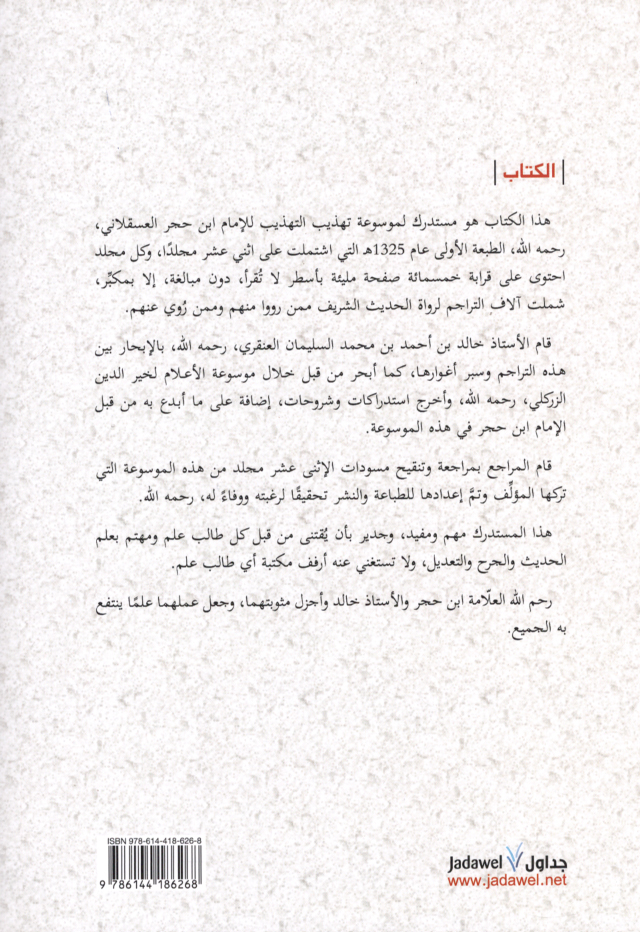 | الكتاب |
هذا الكتاب هو مستدرك لموسوعة تهذيب التهذيب للإمام ابن حجر العسقلاني،
رحمه الله، الطبعة الأولى عام 1325هـ التي اشتملت على اثني عشر مجلدًا، وكل مجلد
احتوى على قرابة خمسمائة صفحة مليئة بأسطر لا تُقرأ، دون مبالغة، إلا بمكبِّر،
شملت آلاف التراجم لرواة الحديث الشريف ممن رووا منهم وممن رُوي عنهم.
قام الأستاذ خالد بن أحمد بن محمد السليمان العنقري، رحمه الله، بالإبحار بين
هذه التراجم وسبر أغوارها، كما أبحر من قبل خلال موسوعة الأعلام لخير الدين
الزركلي، رحمه الله، وأخرج استدراكات وشروحات، إضافة على ما أبدع به من قبل
الإمام ابن حجر في هذه الموسوعة.
قام المراجع بمراجعة وتنقيح مسودات الإثنى عشر مجلد من هذه الموسوعة التي
تركها المؤلِّف وتمَّ إعدادها للطباعة والنشر تحقيقًا لرغبته ووفاءً له، رحمه الله.
هذا المستدرك مهم ومفيد، وجدير بأن يُقتنى من قبل كل طالب علم ومهتم بعلم
الحديث والجرح والتعديل، ولا تستغني عنه أرفف مكتبة أي طالب علم.
رحم الله العلّامة ابن حجر والأستاذ خالد وأجزل مثوبتهما، وجعل عملهما علمًا ينتفع
به الجميع.
ISBN 978-614-418-626-8
9 786144 186268
جداول Jadawel
www.jadawel.net